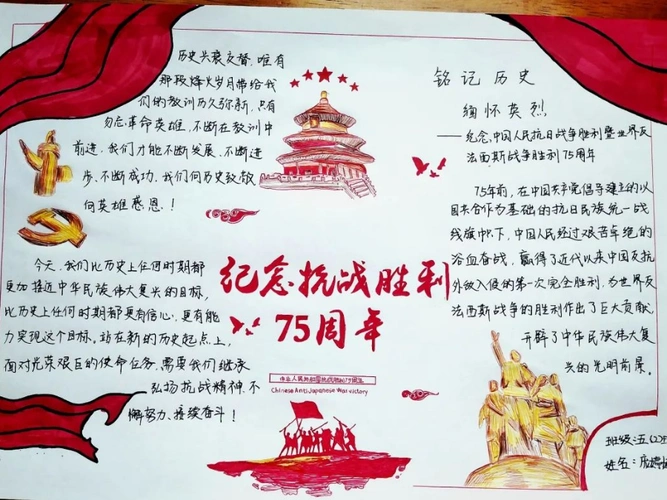 历史兴衰交替,唯有
那段烽火岁月带给我
们的教训历久弥新,只有
勿忘革命英雄,不断在教训中
前进,我们才能不断发展、不断进
步、不断成功,我们向历史致敬
向英雄感恩!
今天,我们比历史上任何时期都
更加接近中华民族伟大复兴的目标,
比历史上任何时期都更有信心、更有能
力实现这个目标。站在新的历史起点上,
面对光荣艰巨的使命任务,需要我们继承
弘扬抗战精神,不
懈努力、接续奋斗!
纪念抗战胜利
75周年
Chinese Anti-Japanese War victory
铭记历史
缅怀英烈
——纪念中国人民抗日战争胜利暨世界反
法西斯战争胜利75周年
75年前,在中国共产党倡导建立的以
国共合作为基础的抗日民族统一战
线旗帜下,中国人民经过艰苦卓绝的
浴血奋战,赢得了近代以来中国反抗
外敌入侵的第一次完全胜利,为世界反
法西斯战争的胜利作出了巨大贡献,
开辟了中华民族伟大复
兴的光明前景。
班级:五
姓名: